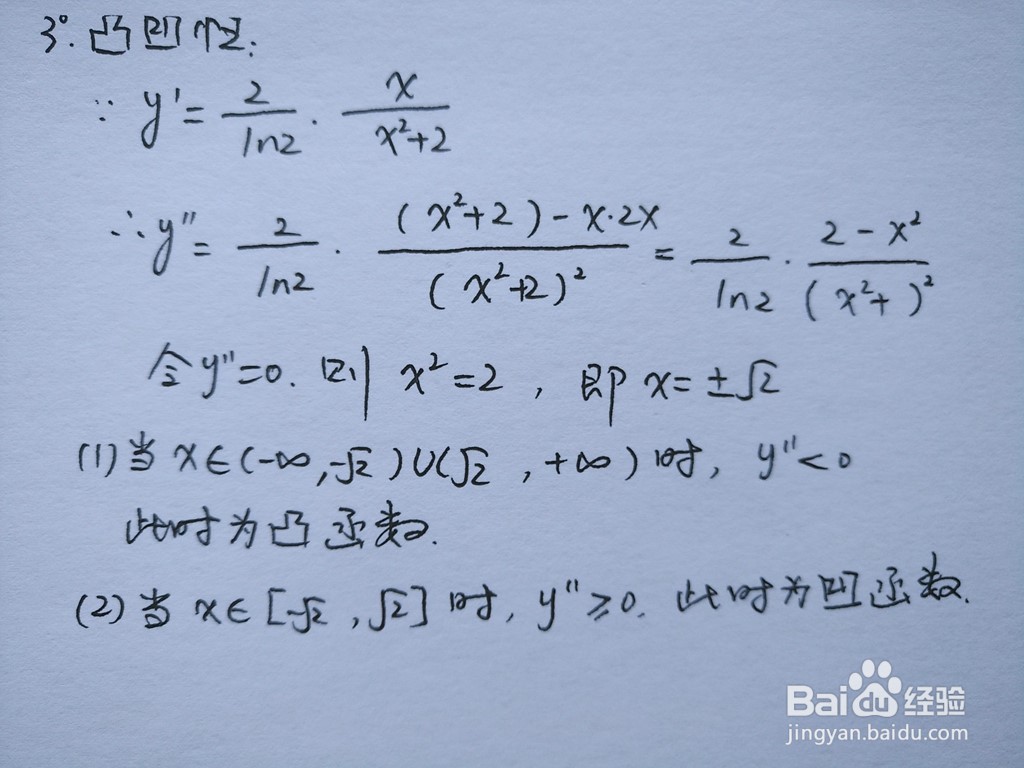 3°. 凸凹性:
∵ y' = 2/ln2 · x/(x²+2)
∴ y'' = 2/ln2 · ((x²+2)-x·2x)/(x²+2)² = 2/ln2 · (2-x²)/(x²+ )²
令y''=0. 则 x²=2 , 即 x=±√2
(1) 当 x∈(-∞,-√2)∪(√2 , +∞) 时, y''<0
此时为凸函数.
(2) 当 x∈[-√2 , √2] 时, y''≥0. 此时为凹函数.
Baidu经验
jingyan.baidu.com